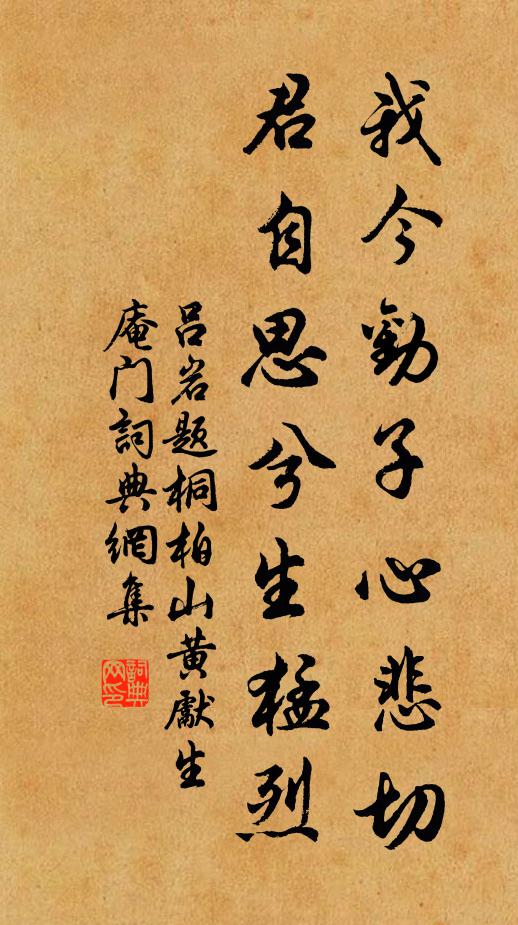 我今勸子心悲切
君自思兮生猛烈
呂岩题桐柏山黄獻生
庵门詞典網集
詞典网印